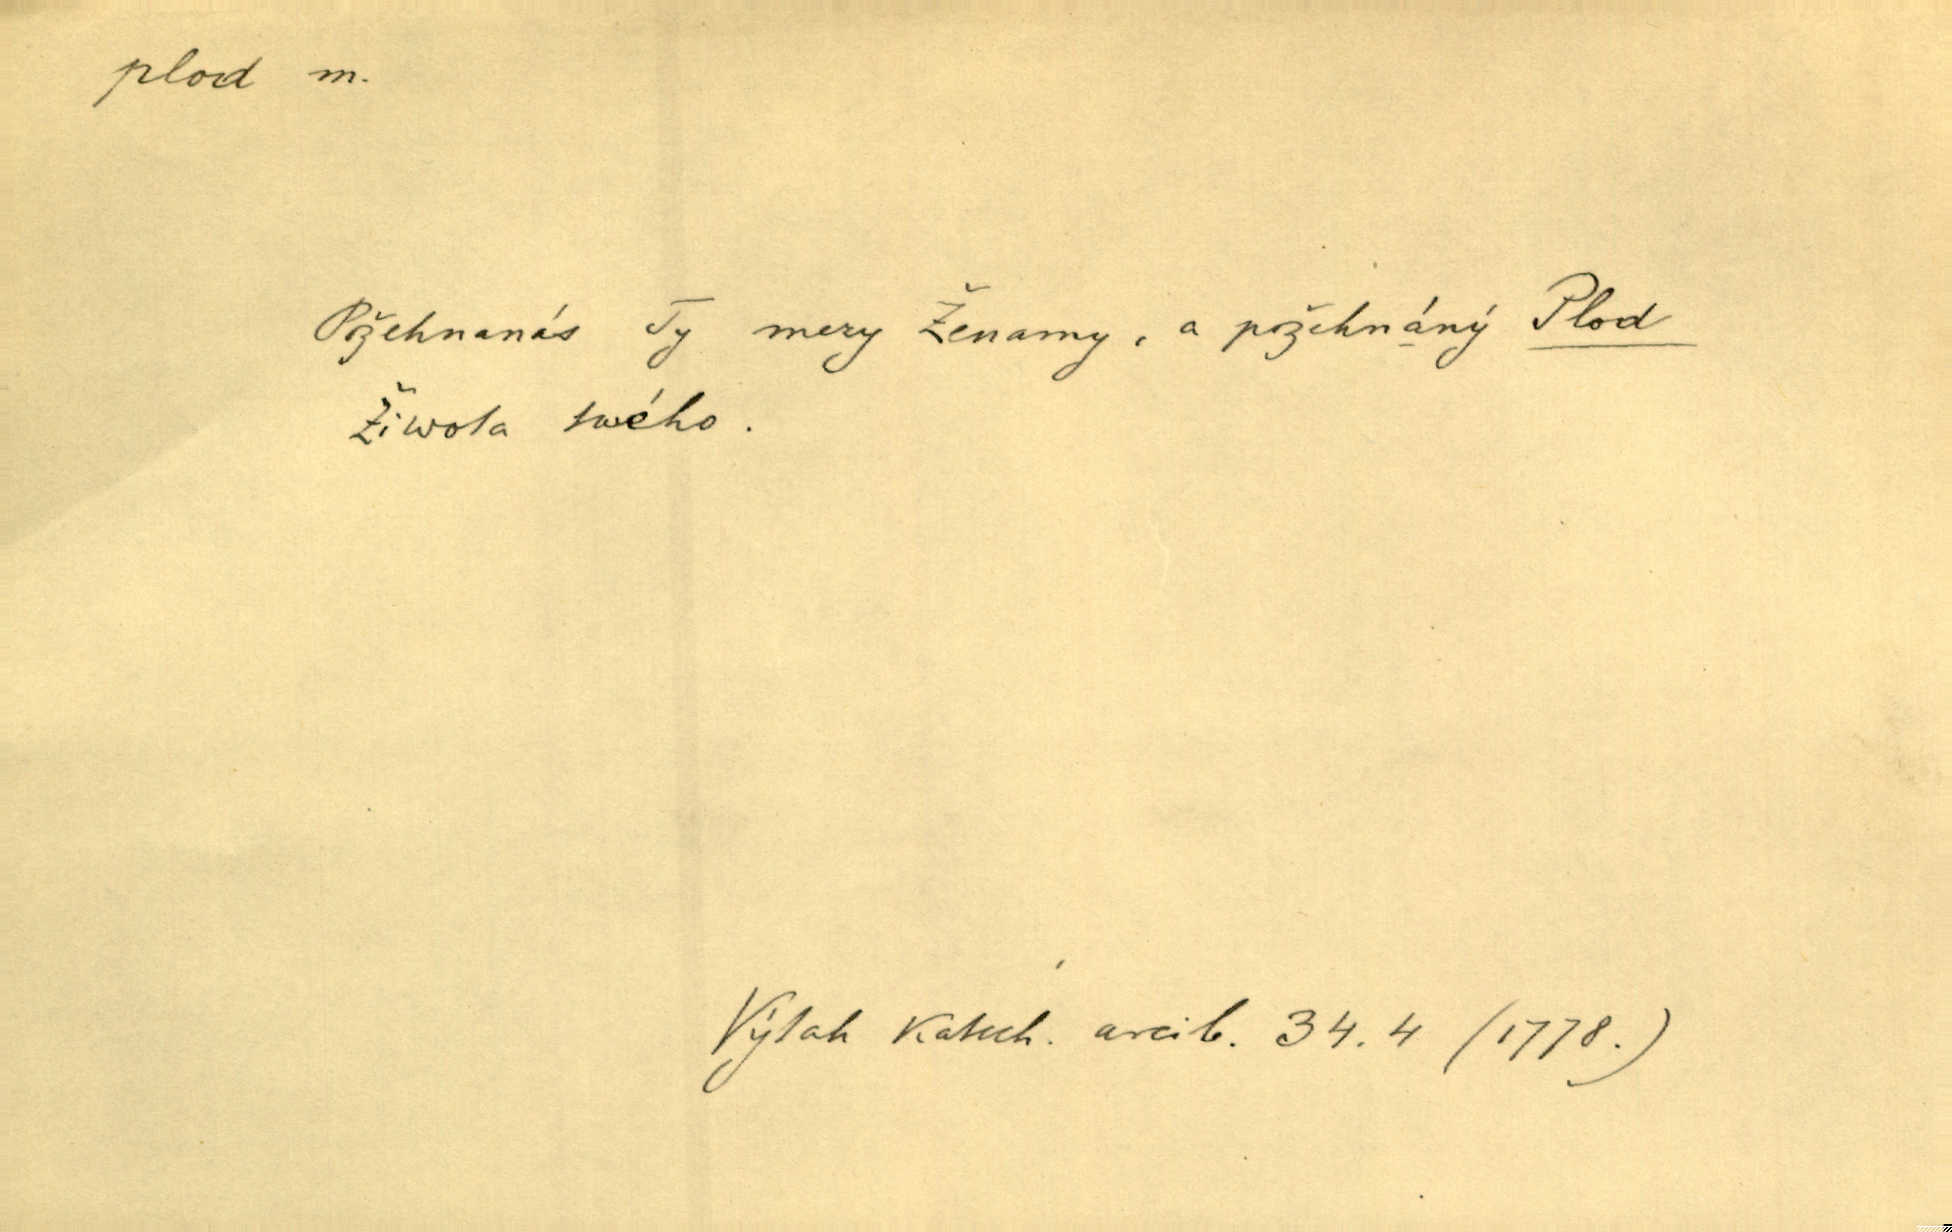 plod m.
Požehnanás Ty mezy Ženamy, a požehnáný Plod
Žiwota twého.
Výtah Katech. arcib. 34.4 (1778.)